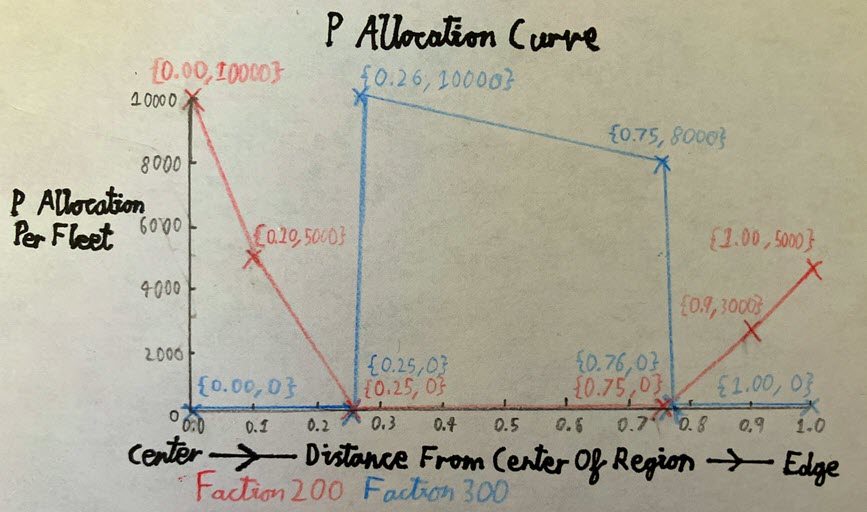 P Allocation Curve
{0.00,10000}
{0.26,10000}
10000
{0.75,8000}
8000
P Allocation
Per Fleet
6000
{0.10,5000}
{1.00,5000}
4000
{0.9,3000}
2000
{0.25,0}
{0.76,0}
{0.00,0}
{0.25,0}
{0.75,0}
{1.00,0}
0
0.0 0.1 0.2 0.3 0.4 0.5 0.6 0.7 0.8 0.9 1.0
Center → Distance From Center Of Region → Edge
Faction 200 Faction 300